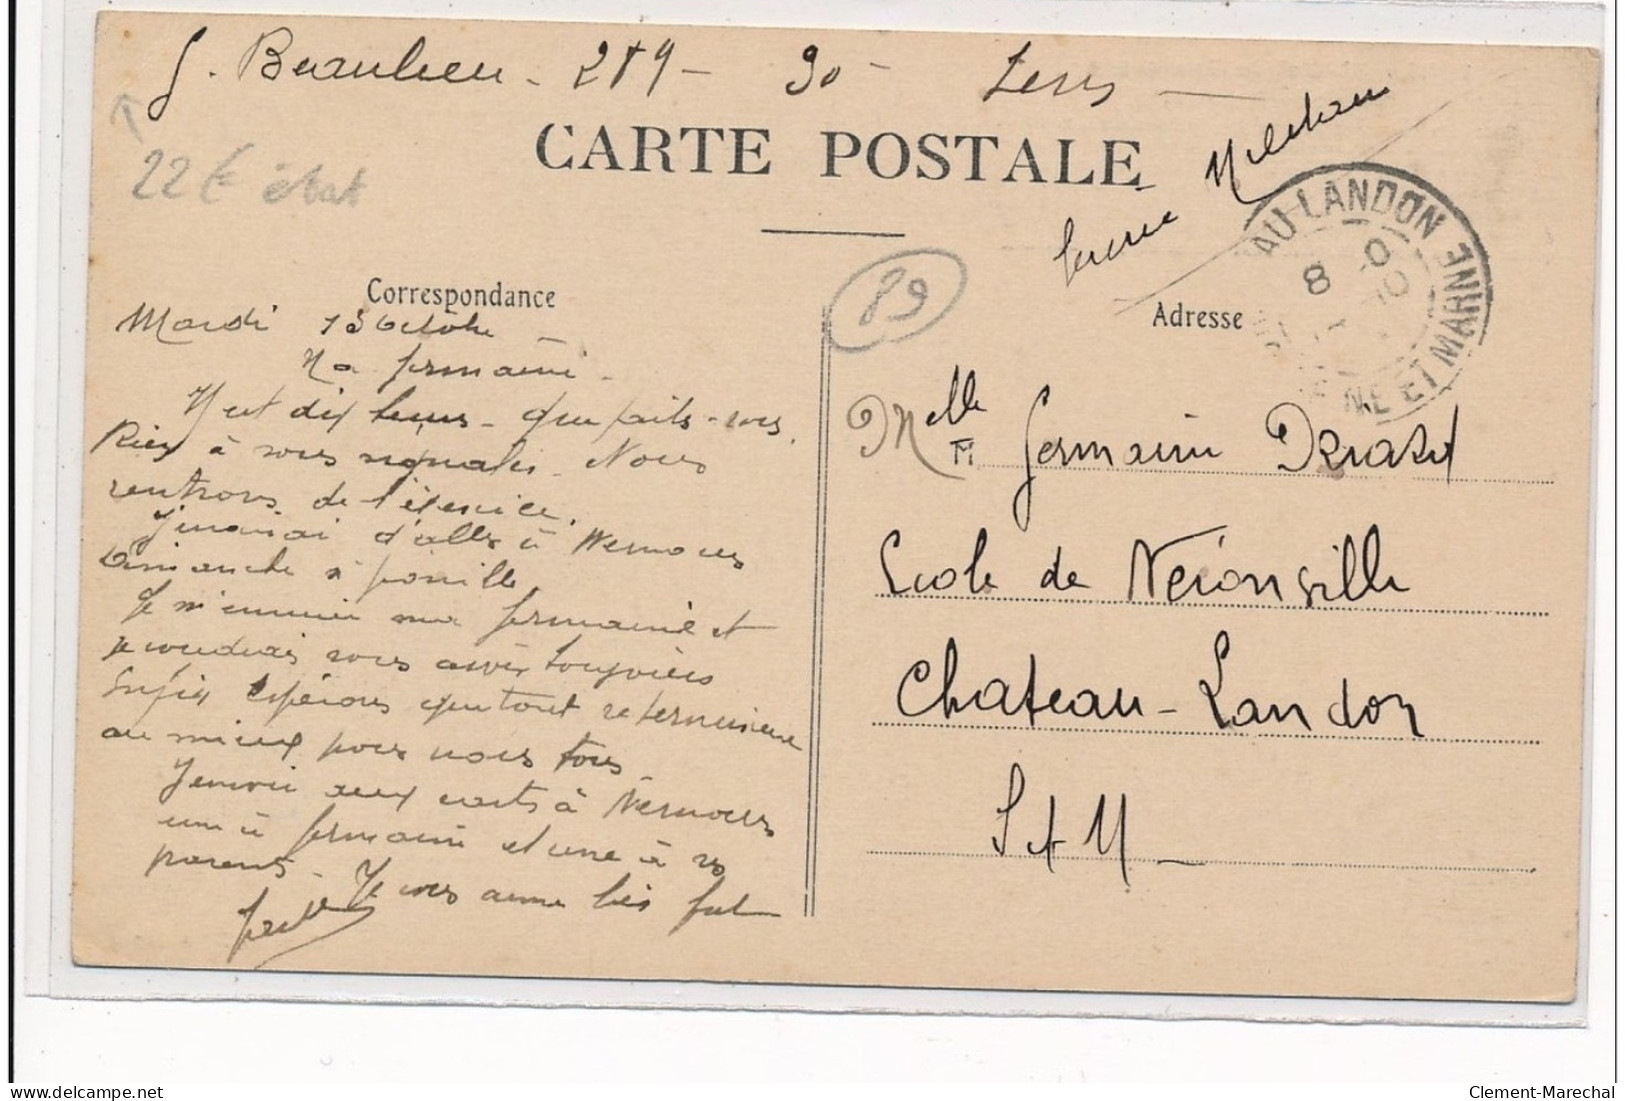 G. Beaulieu - 289 - 30 - Sens
22 € état
CARTE POSTALE
Service Militaire
AU-LANDON
8
NE ET MARNE
Correspondance
89
Adresse
Mardi 13 Octobre
Ma Germaine
Il est dix heures - que faites-vous.
Rien à vous signaler. Nous
rentrons de l'exercice.
J'essaierai d'aller à Nemours
Dimanche si possible
Je m'ennuie ma Germaine et
je voudrais vous avoir toujours
Enfin espérons que tout se terminera
au mieux pour nous tous
J'envoie deux cartes à Nemours
une à Germaine et une à vos
parents - Je vous aime très fort
Melle Germaine
Ecole de Néronville
Chateau-Landon
S et M
Clement-Marechal